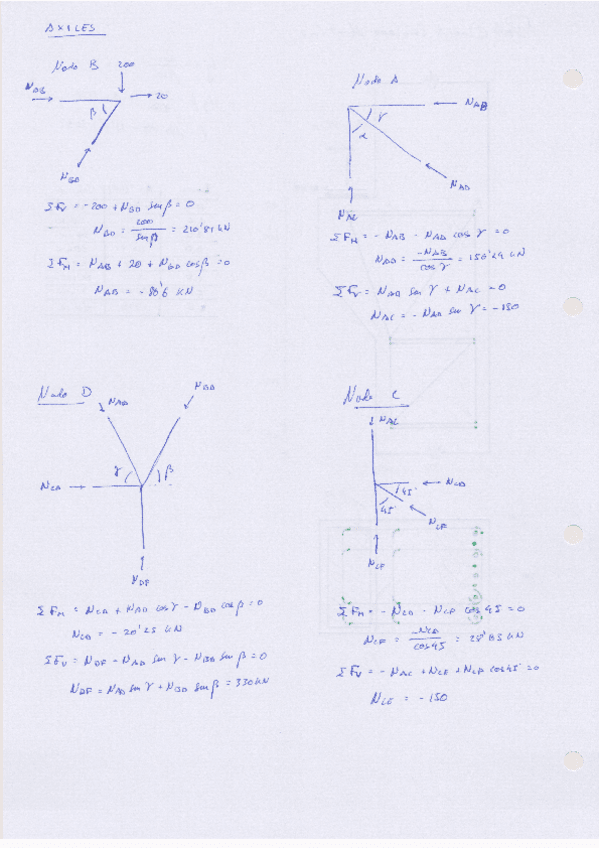 AXILES
Nodo B
200
NAB
20
β
NBD
ΣFV = -200 + NBD sen β = 0
NBD = 200 / sen β = 210'84 kN
ΣFH = NAB + 20 + NBD cos β = 0
NAB = -86'6 kN
Nodo A
NAB
γ
α
NAD
NAC
ΣFH = -NAB - NAD cos γ = 0
NAD = -NAB / cos γ = 156'29 kN
ΣFV = NAD sen γ + NAC = 0
NAC = -NAD sen γ = -130
Nodo D
NAD
NBD
γ
β
NCD
NDF
ΣFH = NCD + NAD cos γ - NBD cos β = 0
NCD = -20'25 kN
ΣFV = NDF - NAD sen γ - NBD sen β = 0
NDF = NAD sen γ + NBD sen β = 330 kN
Nodo C
NAC
NCD
45
45
NCF
NCE
ΣFH = -NCD - NCF cos 45 = 0
NCF = -NCD / cos 45 = 28'63 kN
ΣFV = -NAC + NCE + NCF cos 45 = 0
NCE = -150